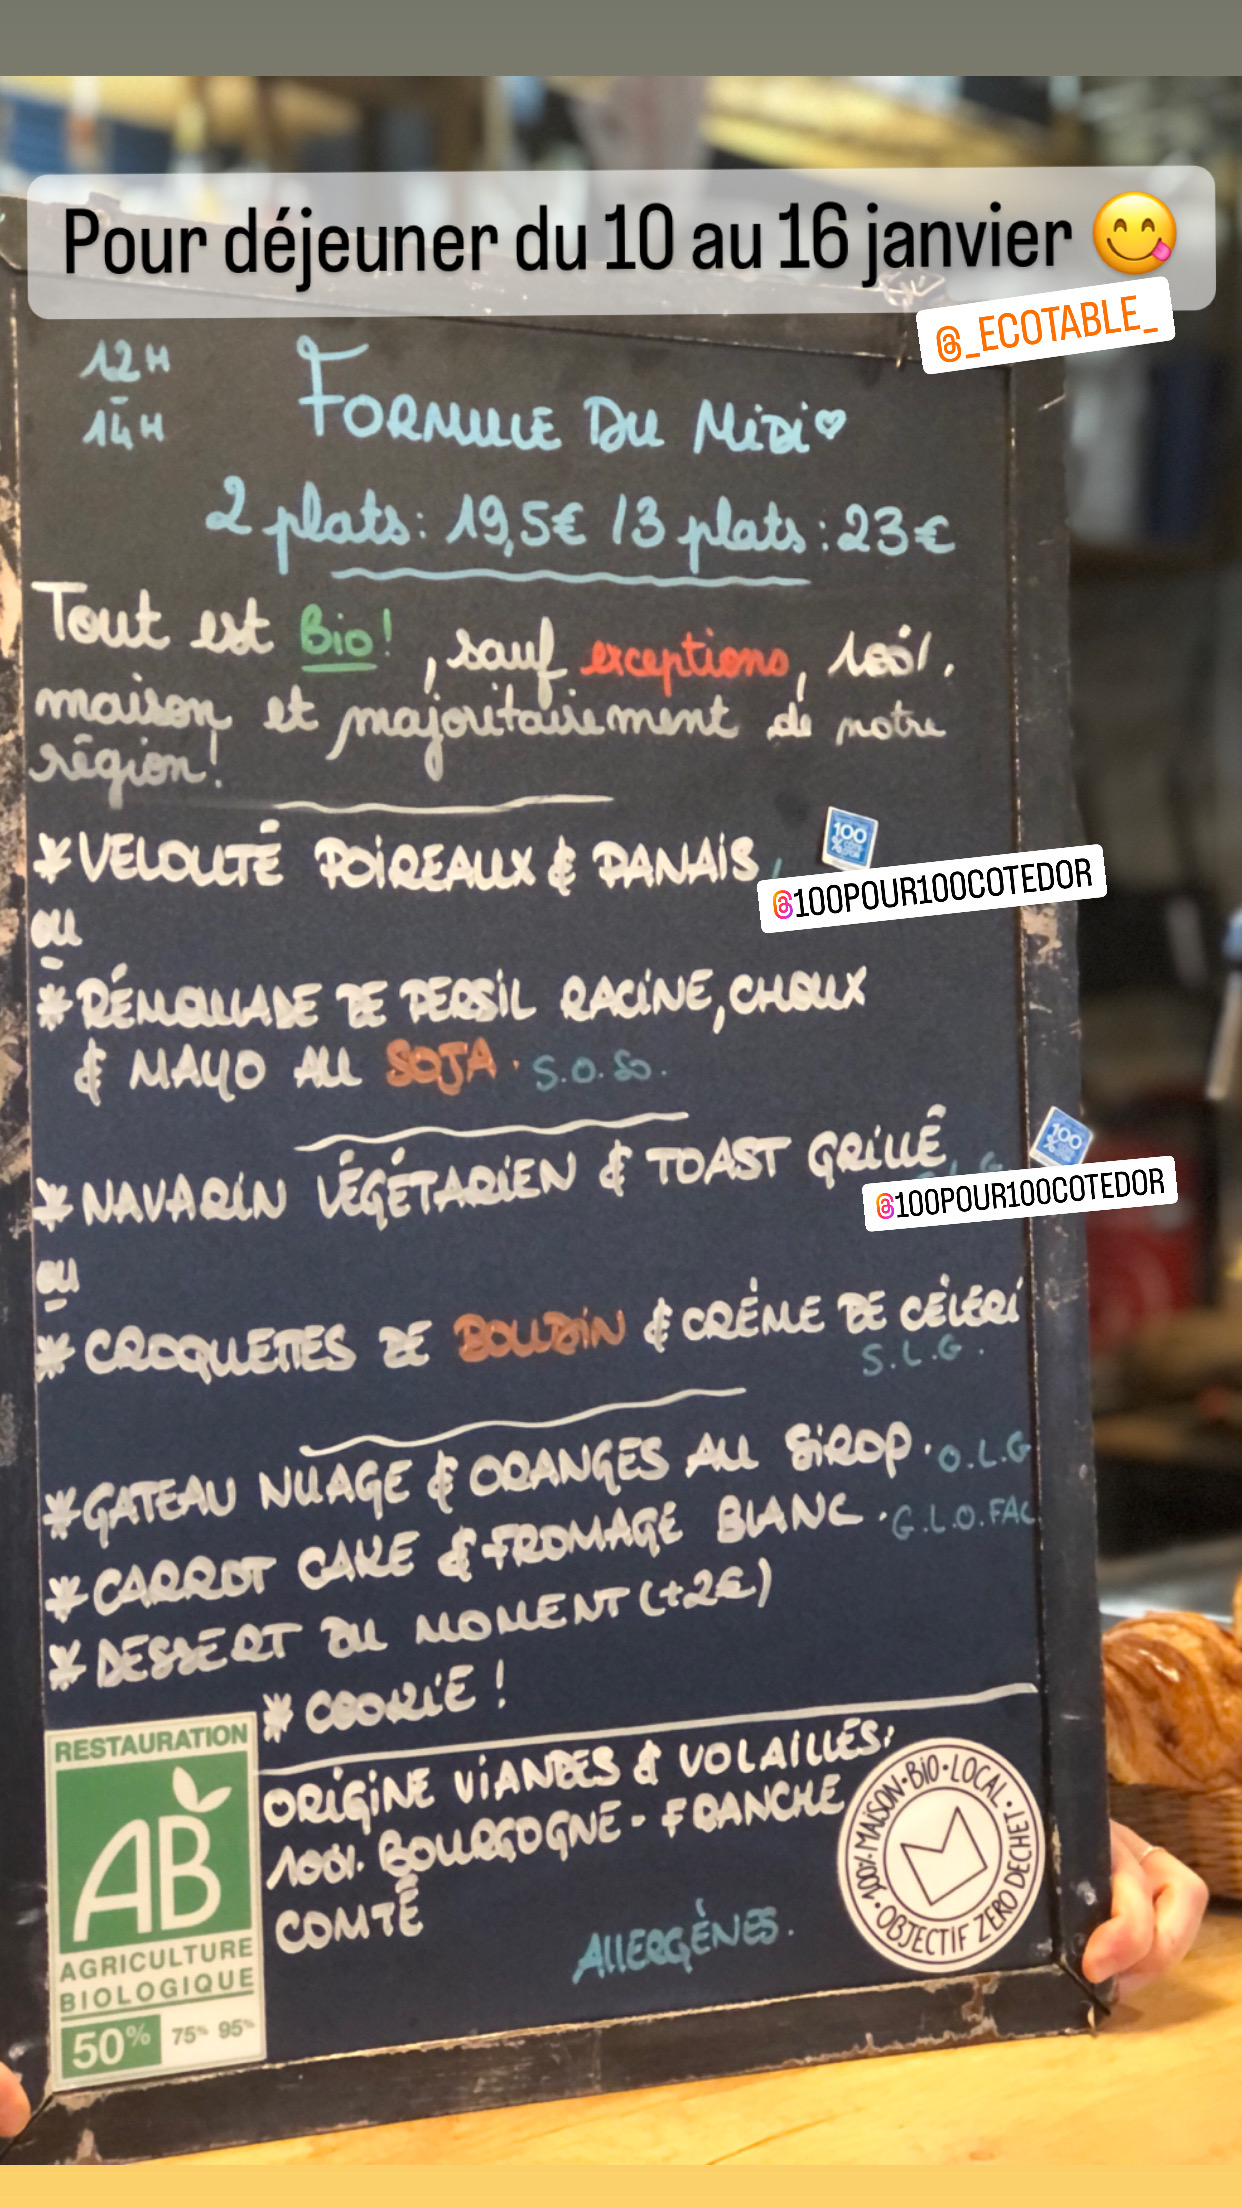 Pour déjeuner du 10 au 16 janvier 😋
@_ECOTABLE_
12H
-
14H
FORMULE DU MiDi♡
2 plats: 19,5€ / 3 plats: 23€
Tout est Bio!, sauf exceptions, 100%
maison et majoritairement de notre
région!
*VELOUTÉ POiREAUX & PANAiS
100
@100POUR100COTEDOR
OU
*RÉMOULADE DE PERSiL RACiNE, CHOUX
& MAYO AU SOJA. S.O.So.
*NAVARiN VÉGÉTARiEN & TOAST GRiLLÉ
100
@100POUR100COTEDOR
OU
*CROQUETTES DE BOUDiN & CRÈME DE CÉLERi
S.L.G.
*GATEAU NUAGE & ORANGES AU SiROP. O.L.G
*CARROT CAKE & FROMAGE BLANC. G.L.O.FAC
*DESSERT DU MOMENT (+2€)
*COOKiE!
RESTAURATION
AB
AGRICULTURE
BIOLOGIQUE
50% 75% 95%
ORiGiNE ViANDES & VOLAiLLES:
100% BOURGOGNE-FRANCHE
COMTÉ
ALLERGÈNES.
100% MAISON • BIO • LOCAL • OBJECTIF ZERO DECHET •